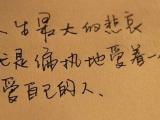 人生最大的悲哀
无是偏执地爱着一
爱自己的人、